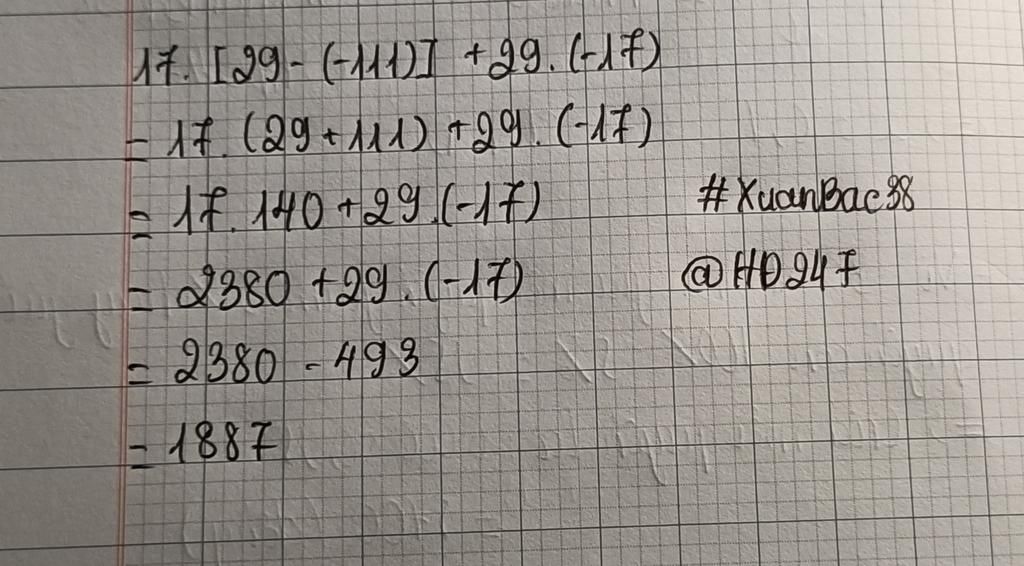 17. [29 - (-111)] + 29. (-17)
= 17. (29 + 111) + 29. (-17)
= 17. 140 + 29. (-17)
#XuanBac98
= 2380 + 29. (-17)
@HD247
= 2380 - 493
= 1887